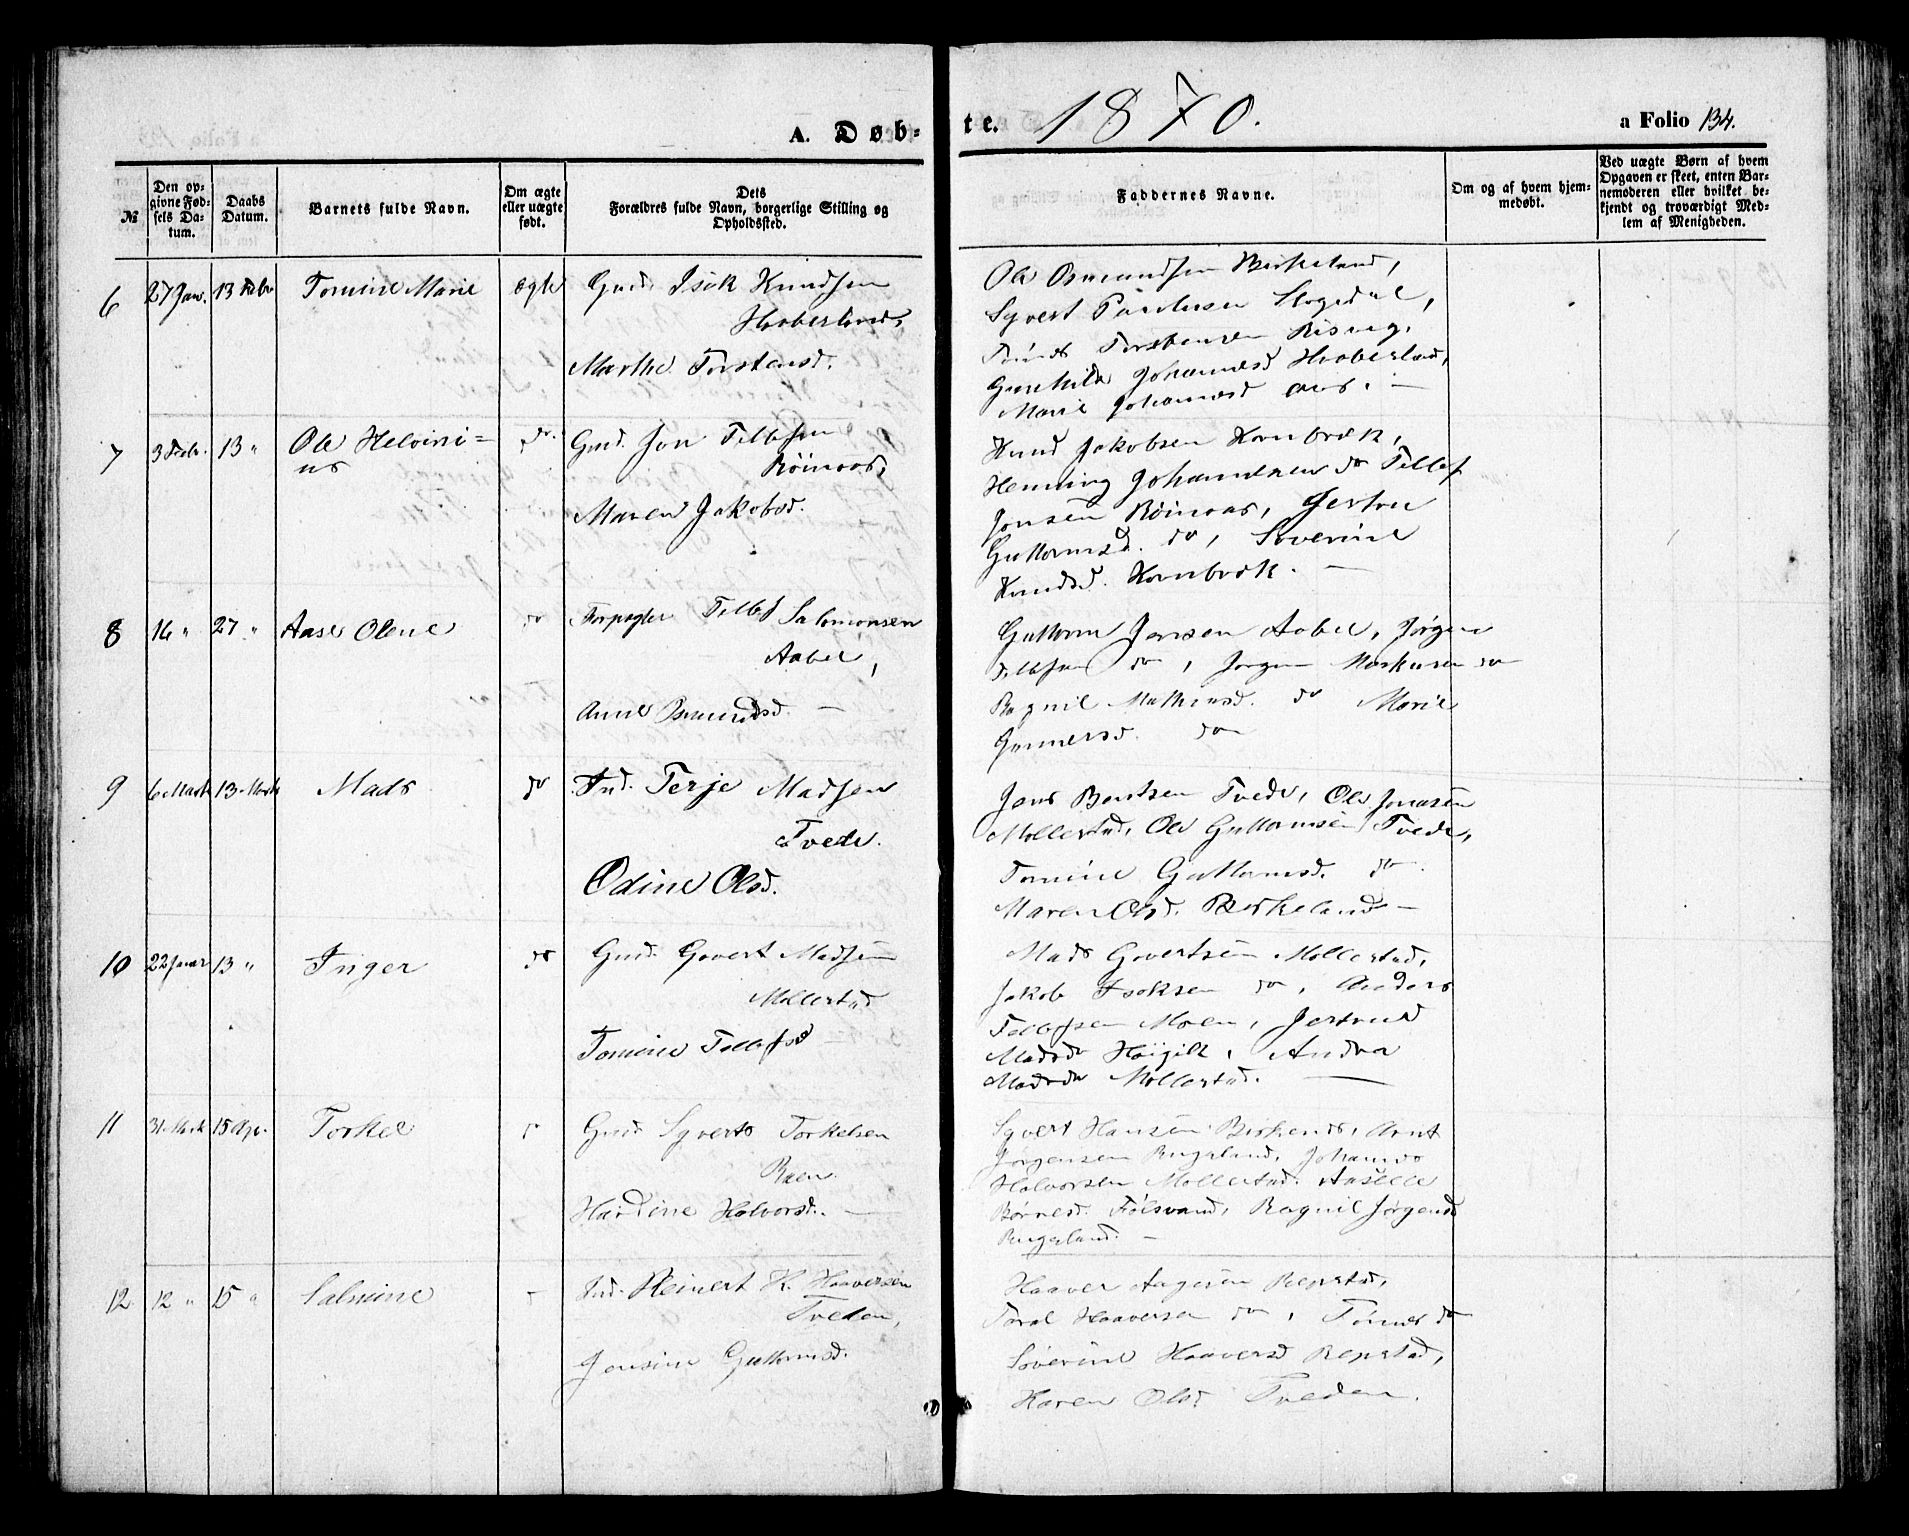 A. Døb-
te. 1870.
a Folio 134.
№
Den op-
givne Fød-
sels Da-
tum.
Daabs
Datum.
Barnets fulde Navn.
Om ægte
eller uægte
født.
Dets
Forældres fulde Navn, borgerlige Stilling og
Opholdssted.
Faddernes Navne.
Om og af hvem hjem-
medøbt.
Ved uægte Børn af hvem
Opgaven er skeet, enten Bar-
nemoderen eller hvilket be-
kjendt og troværdigt Med-
lem af Menigheden.
6 27 Jan. 13 Febr Tomine Marie ægte Gmd. Isak Knudsen
Haaberland,
Marthe Torstensd.
Ole Osmundsen Birkeland,
Syvert Paulusen Slogedal,
Tønnes Torstensen Risveg,
Gunhilde Johannesd Haaberland,
Marie Johannesd
7 3 Febr. 13 " Ole Helvini=
us do. Gmd. Jon Tellefsen
Røinaas,
Maren Jakobsd.
Knud Jakobsen Kornbræk,
Henning Johannesen do Tellef
Jonsen Røinaas, Jertru
Guttormsd. do, Severine
Knudsd. Kornbræk. —
8 16 " 27 " Aase Olene do Forpagter Tellef Salomonsen
Aabel,
Anne Osmundsd. —
Guttorm Jensen Aabel, Jørgen
Tellefsen do, Jørgen Markusen do
Ragnil Mathiasd. do Marie
Gunnersd. do
9 6 Marts 13 Marts Mads do Ind. Terje Madsen
Tvede.
Odine Olsd.
Jens Bentsen Tvede, Ole Jonasen
Mollestad, Ole Guttormsen Tvede,
Tomine Guttormsd. do
Maren Olsd. Birkeland —
10 22 Januar 13 " Inger do Gmd. Govert Madsen
Mollestad
Tomine Tellefsd —
Mads Govertsen Mollestad,
Jakob Isaksen do, Anders
Tellefsen Moen, Jertrud
Madsdr Høigilt, Andrea
Madsdr Mollestad. —
11 31 Marts 15 Apr. Torkel Gmd. Syvert Torkelsen
Raen.
Hardine Halvorsd. —
Syvert Hansen Birkenes, Arnt
Jørgensen Rugsland, Johannes
Halvorsen Mollestad.
Børnesd. Følsvand, Ragnil Jørgensd
Rugsland. —
12 12 " 15 " Salmine Ind. Reinert K. Haaversen
Tveden,
Jonsine Guttormsd.
Haaver Aagesen Repstad,
Taral Haaversen do, Tønnes do
Søverine Haaversd Repstad,
Karen Olsd Tveden.